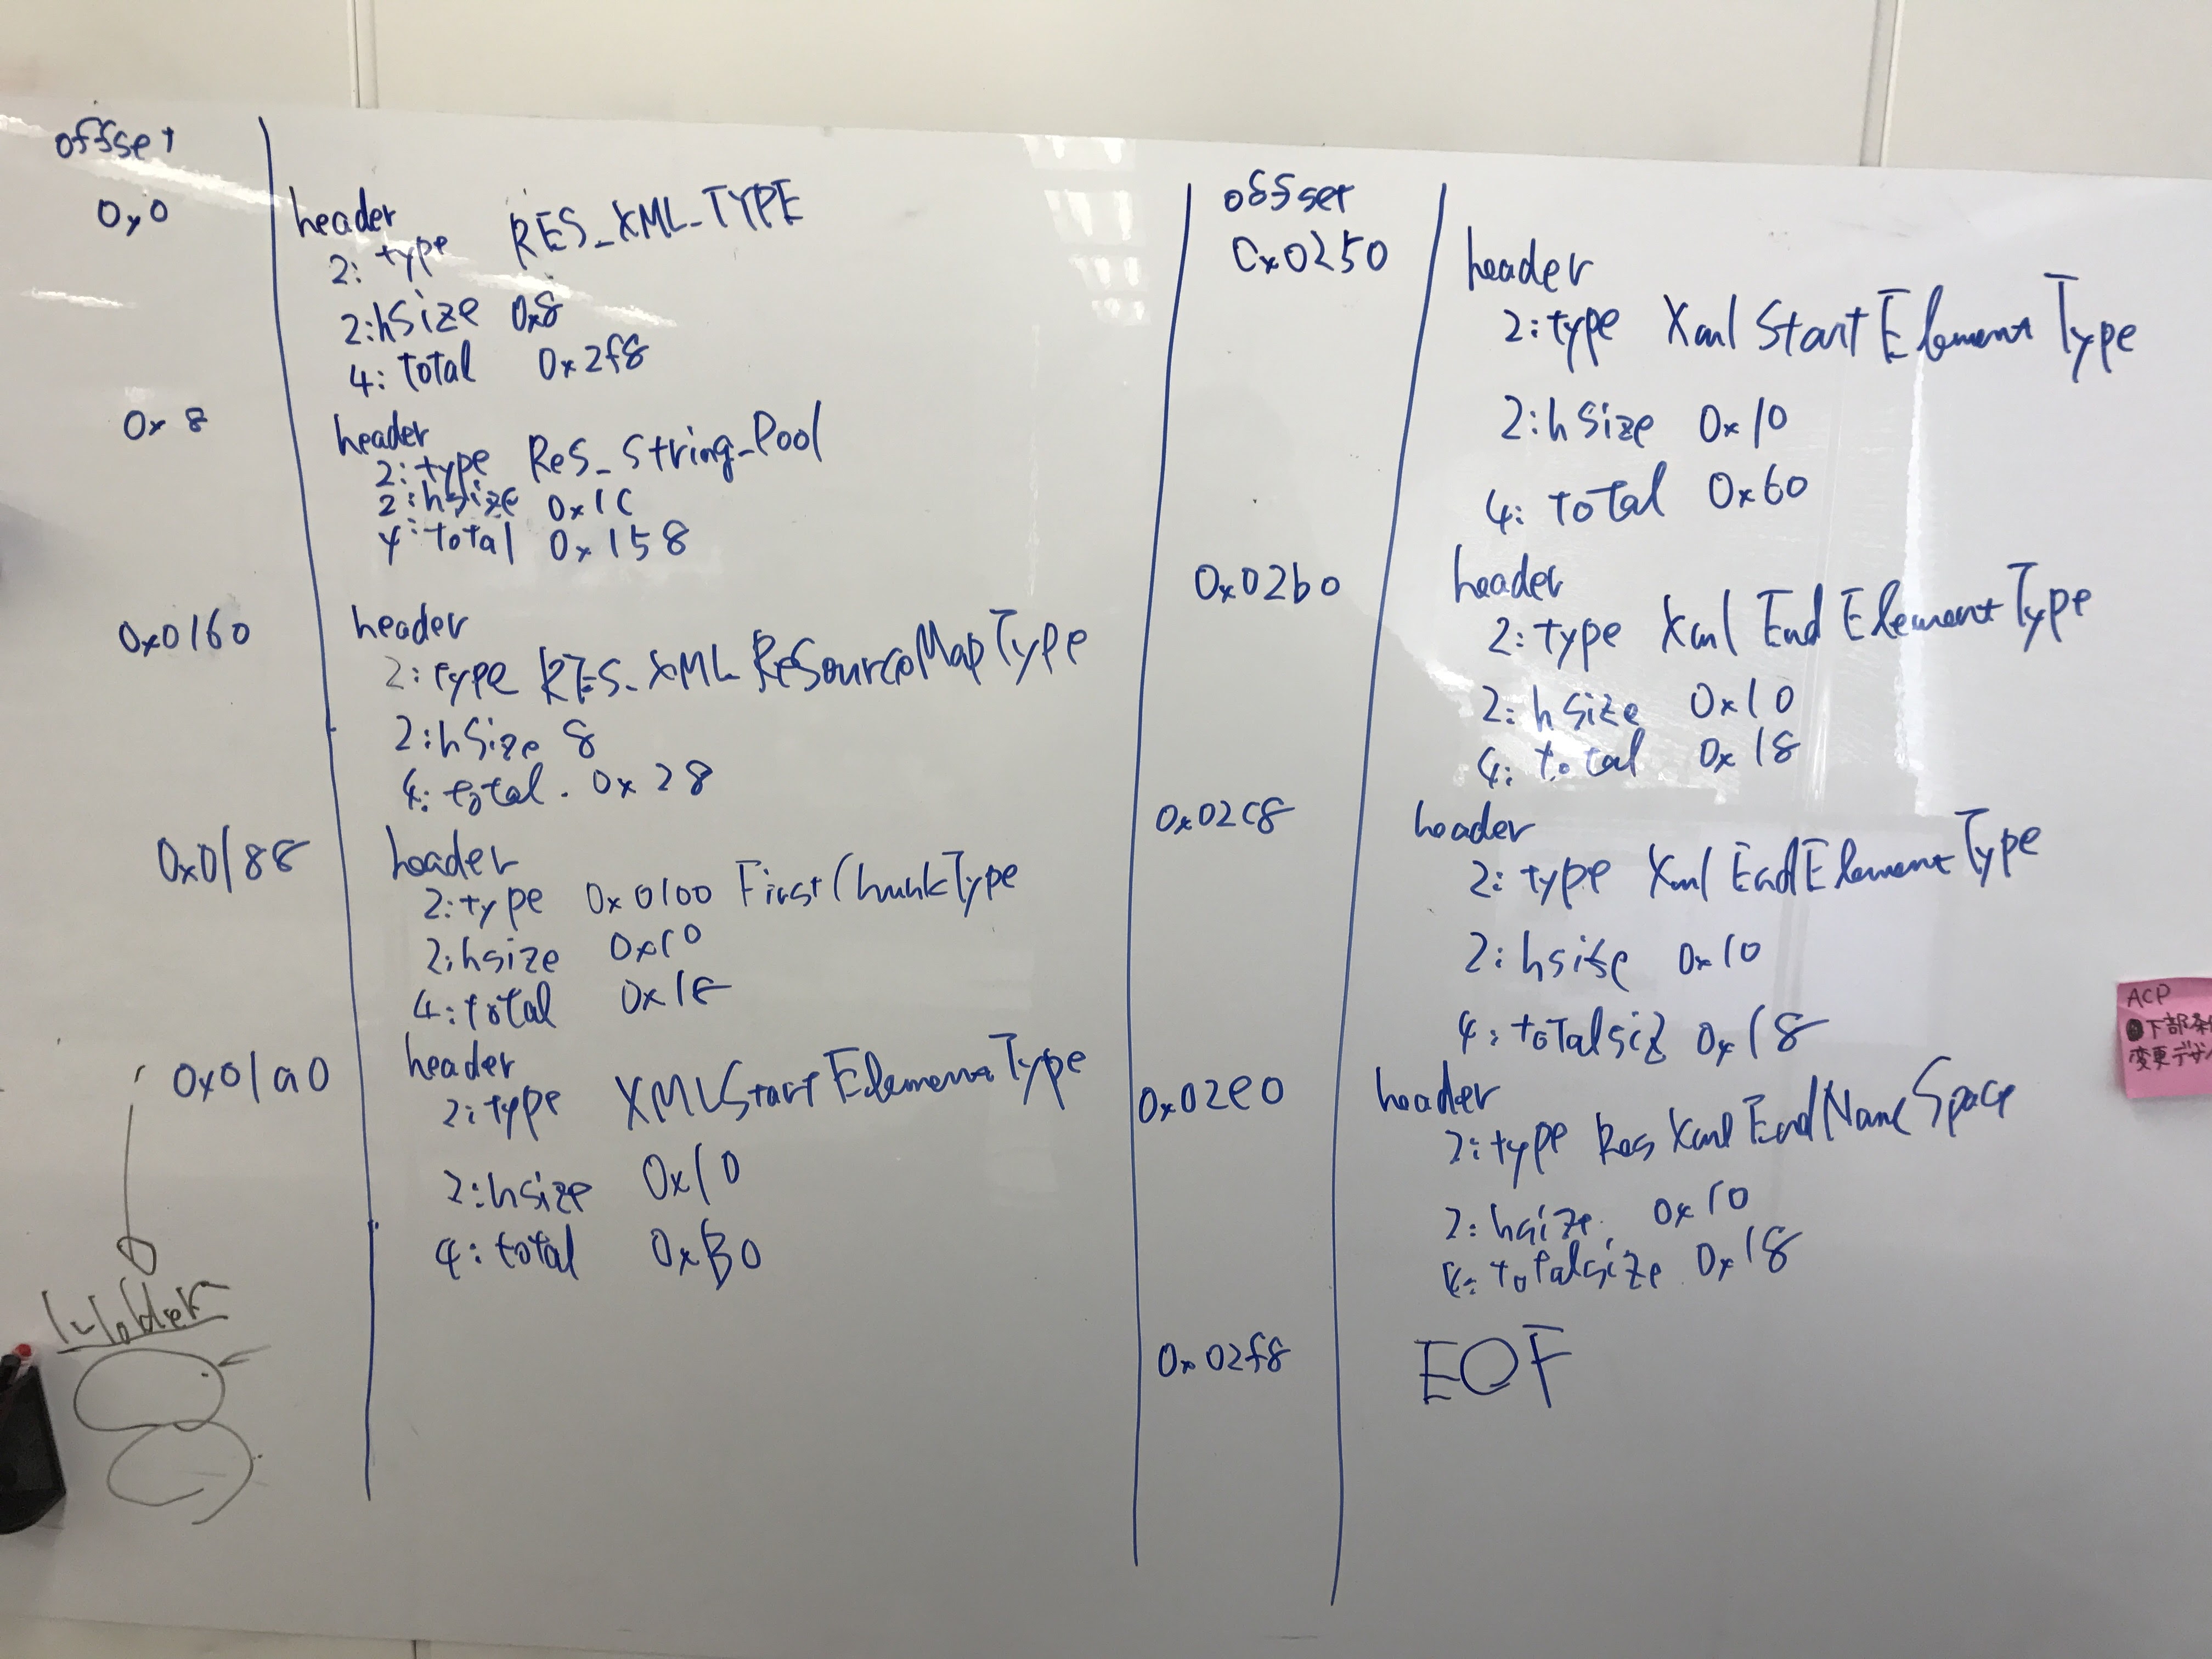 offset
0x0
header
2: type RES_XML_TYPE
2:hsize 0x8
4: total 0x2f8
0x8
header
2:type ReS_String_Pool
2:hsize 0x1C
4:total 0x158
0x0160
header
2:type RES_XML ResourceMapType
2:hSize 8
4:total. 0x28
0x0188
header
2:type 0x0100 FirstChunkType
2:hsize 0x10
4:total 0x18
0x01a0
header
2:type XMLStartElementType
2:hsize 0x10
4:total 0xB0
offset
0x0250
header
2:type XmlStartElementType
2:hsize 0x10
4: total 0x60
0x02b0
header
2:type Xml End ElementType
2:hsize 0x10
4: total 0x18
0x02C8
header
2: type Xml EndElementType
2:hsize 0x10
4:totalsiz 0x18
0x02e0
header
2:type Res Xml EndNameSpace
2:hsize. 0x10
4:totalsize 0x18
0x02f8
EOF
ACP
下部条
変更デザ